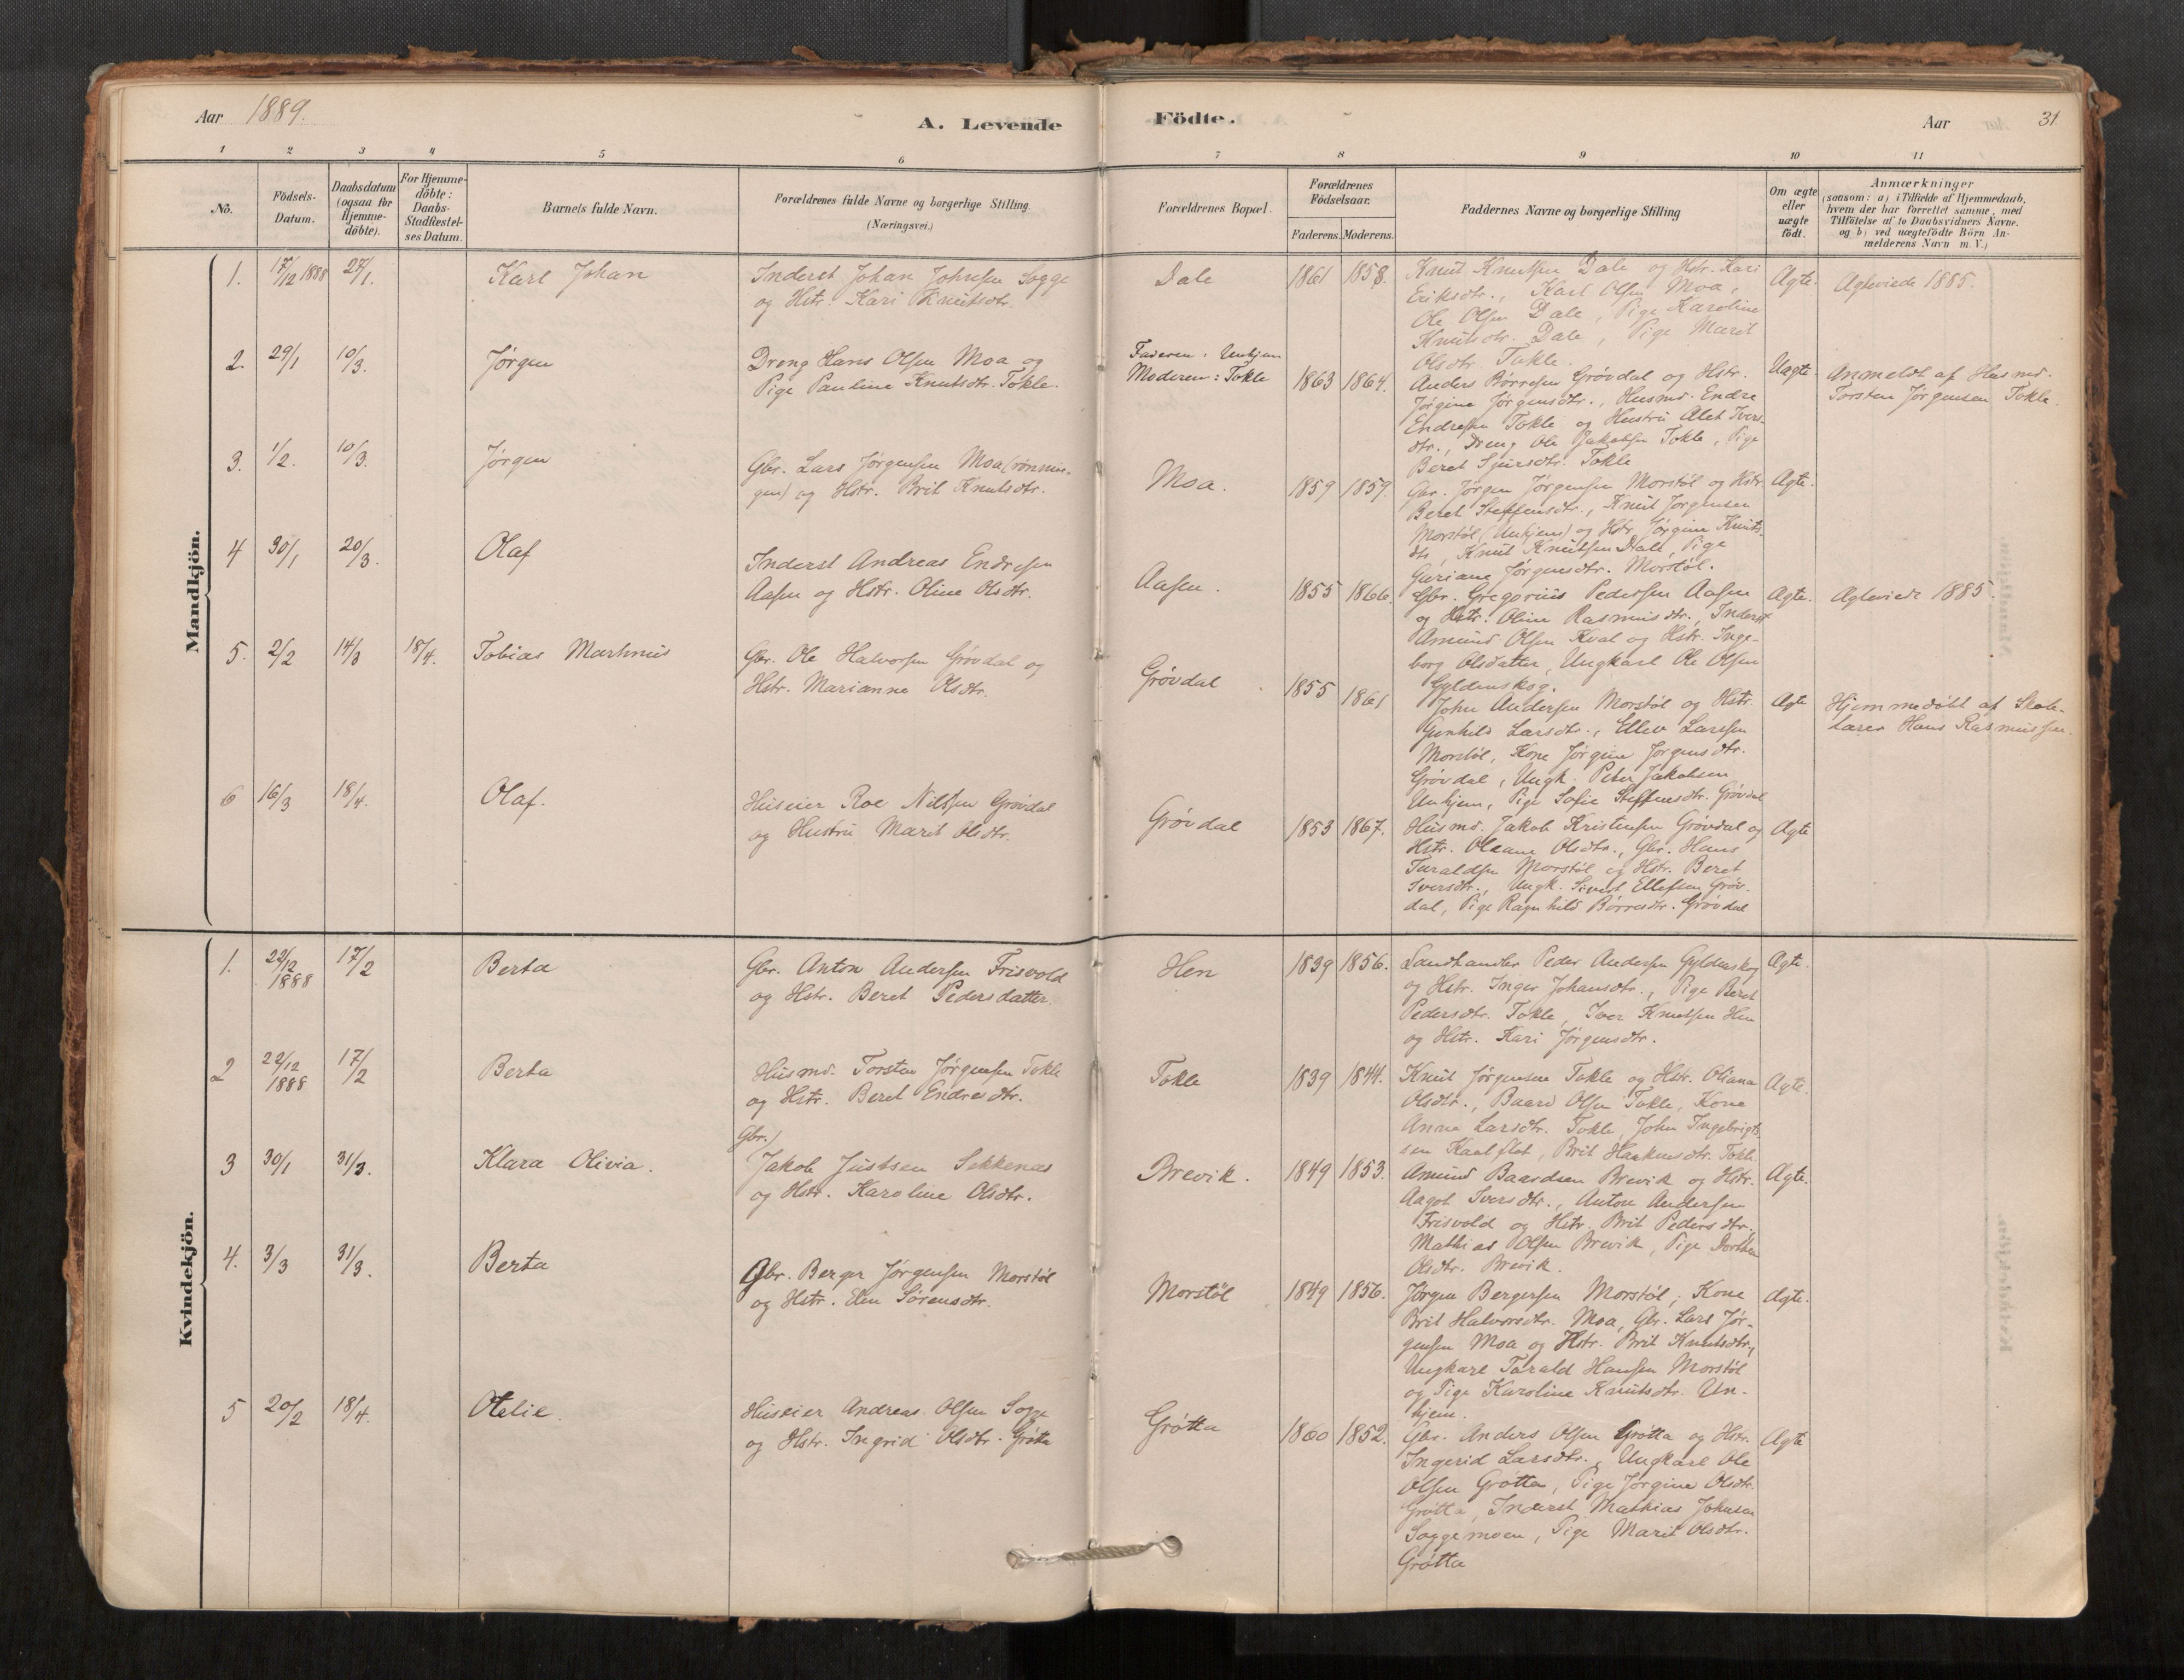 Aar 1889.
A. Levende
Födte.
Aar
31.
1 2 3 4 5 6 7 8 9 10 11
No.
Födsels-
Datum.
Daabsdatum
(ogsaa for
Hjemme-
döbte).
For Hjemme-
döbte:
Daabs-
Stadfæstel-
ses Datum.
Barnets fulde Navn.
Forældrenes fulde Navne og borgerlige Stilling.
(Næringsvei.)
Forældrenes Bopæl.
Forældrenes
Födselsaar.
Faderens. Moderens.
Faddernes Navne og borgerlige Stilling
Om ægte
eller
uægte
födt.
Anmærkninger
(saasom: a) i Tilfælde af Hjemmedaab,
hvem der har forrettet samme, med
Tilföielse af to Daabsvidners Navne.
og b) ved uægtefödte Börn An-
melderens Navn m. V.)
Mandkjön.
1. 17/12 1888 27/1. Karl Johan
Inderst Johan Johnsen Sogge
og Hstr. Kari Knutsdtr.
Dale 1861 1858.
Knut Knutsen Dale og Hstr. Kari
Eriksdtr., Karl Olsen Moa,
Ole Olsen Dale, Pige Karoline
Knutsdtr. Dale, Pige Marit
Olsdtr. Tokle.
Agte. Agteviede 1885.
2. 29/1 10/3. Jørgen
Dreng Hans Olsen Moa og
Pige Pauline Knutsdtr. Tokle.
Faderen: Unhjem
Moderen: Tokle 1863 1864.
Anders Børresen Grøvdal og Hstr.
Jørgine Jørgensdtr., Husmd. Endre
Endresen Tokle og Hustru Alet Ivers-
dtr., Dreng Ole Jakobsen Tokle, Pige
Beret Sjursdtr. Tokle
Uagte. Anmeldt af Husmd.
Torsten Jørgensen Tokle.
3. 1/2. 10/3. Jørgen
Gbr. Lars Jørgensen Moa (rønnin-
gen) og Hstr. Brit Knutsdtr.
Moa. 1859 1859.
Gbr. Jørgen Jørgensen Morstøl og Hstr
Beret Steffensdtr., Knut Jørgensen
Morstøl (Unhjem) og Hstr. Jørgine Knuts-
dtr, Knut Knutsen Dale, Pige
Guriane Jørgensdtr. Morstøl.
Agte.
4 30/1 20/3. Olaf
Inderst Andreas Endresen
Aasen og Hstr. Oline Olsdtr.
Aasen. 1855 1866.
Gbr. Gregorius Pedersen Aasen
og Hstr. Oline Rasmusdtr., Inderst
Amund Olsen Kval og Hstr. Inge-
borg Olsdatter, Ungkarl Ole Olsen
Gyldenskog.
Agte. Agteviede 1885.
5. 2/2 14/3 18/4. Tobias Martinus
Gbr. Ole Halvorsen Grøvdal og
Hstr. Marianne Olsdtr.
Grøvdal 1855 1861
John Andersen Morstøl og Hstr.
Gunhild Larsdtr., Ellev Larsen
Morstøl, Kone Jørgine Jørgensdtr.
Grøvdal, Ungk. Peter Jakobsen
Unhjem, Pige Sofie Steffensdtr. Grøvdal
Agte Hjemmedøbt af Skole-
lærer Hans Rasmussen.
6 16/3 18/4. Olaf.
Huseier Roe Nilssen Grøvdal
og Hustru Marit Olsdtr.
Grøvdal 1853 1867.
Husmd. Jakob Kristensen Grøvdal og
Hstr. Oleane Olsdtr., Gbr. Hans
Taraldsen Morstøl og Hstr. Beret
Iversdtr., Ungk. Sivert Ellefsen Grøv-
dal, Pige Ragnhild Børresdtr. Grøvdal
Agte
Kvindekjön.
1. 22/12 1888 17/2 Berta
Gbr. Anton Andersen Frisvold
og Hstr. Beret Pedersdatter.
Hen 1839 1856.
Landhandler Peder Andersen Gyldenskog
og Hstr. Inger Johansdtr., Pige Beret
Pedersdtr. Tokle, Iver Knutsen Hen
og Hstr. Kari Jørgensdtr.
Agte.
2 22/12 1888 17/2 Berta
Husmd. Torsten Jørgensen Tokle
og Hstr. Beret Endresdtr.
Tokle 1839 1844.
Knut Jørgensen Tokle og Hstr. Oliana
Olsdtr., Baard Olsen Tokle, Kone
Anne Larsdtr. Tokle, John Ingebrigt-
sen Kaalflot, Brit Haakensdtr. Tokle.
Agte.
3 30/1 31/3. Klara Olivia.
Gbr.)
Jakob Justsen Sekkenes
og Hstr. Karoline Olsdtr.
Brevik. 1849 1853.
Amund Baardsen Brevik og Hstr.
Aagot Iversdtr., Anton Andersen
Frisvold og Hstr. Brit Pedersdtr.
Mathias Olsen Brevik, Pige Dorthea
Olsdtr. Brevik.
Agte.
4. 3/3 31/3. Berta
Gbr. Berger Jørgensen Morstøl
og Hstr. Elen Sørensdtr.
Morstøl 1849 1856.
Jørgen Bergersen Morstøl, Kone
Brit Halvorsdtr. Moa, Gbr. Lars Jør-
gensen Moa og Hstr. Brit Knutsdtr,
Ungkarl Tarald Hansen Morstøl
og Pige Karoline Knutsdtr. Un-
hjem.
Agte.
5 20/2 18/4. Otelie.
Huseier Andreas Olsen Sogge
og Hstr. Ingrid Olsdtr. Grøtta
Grøtta 1860 1852.
Gbr. Anders Olsen Grøtta og Hstr.
Ingerid Larsdtr., Ungkarl Ole
Olsen Grøtta, Pige Jørgine Olsdtr.
Grøtta, Inderst Mathias Johnsen
Soggemoen, Pige Marit Olsdtr.
Grøtta
Agte